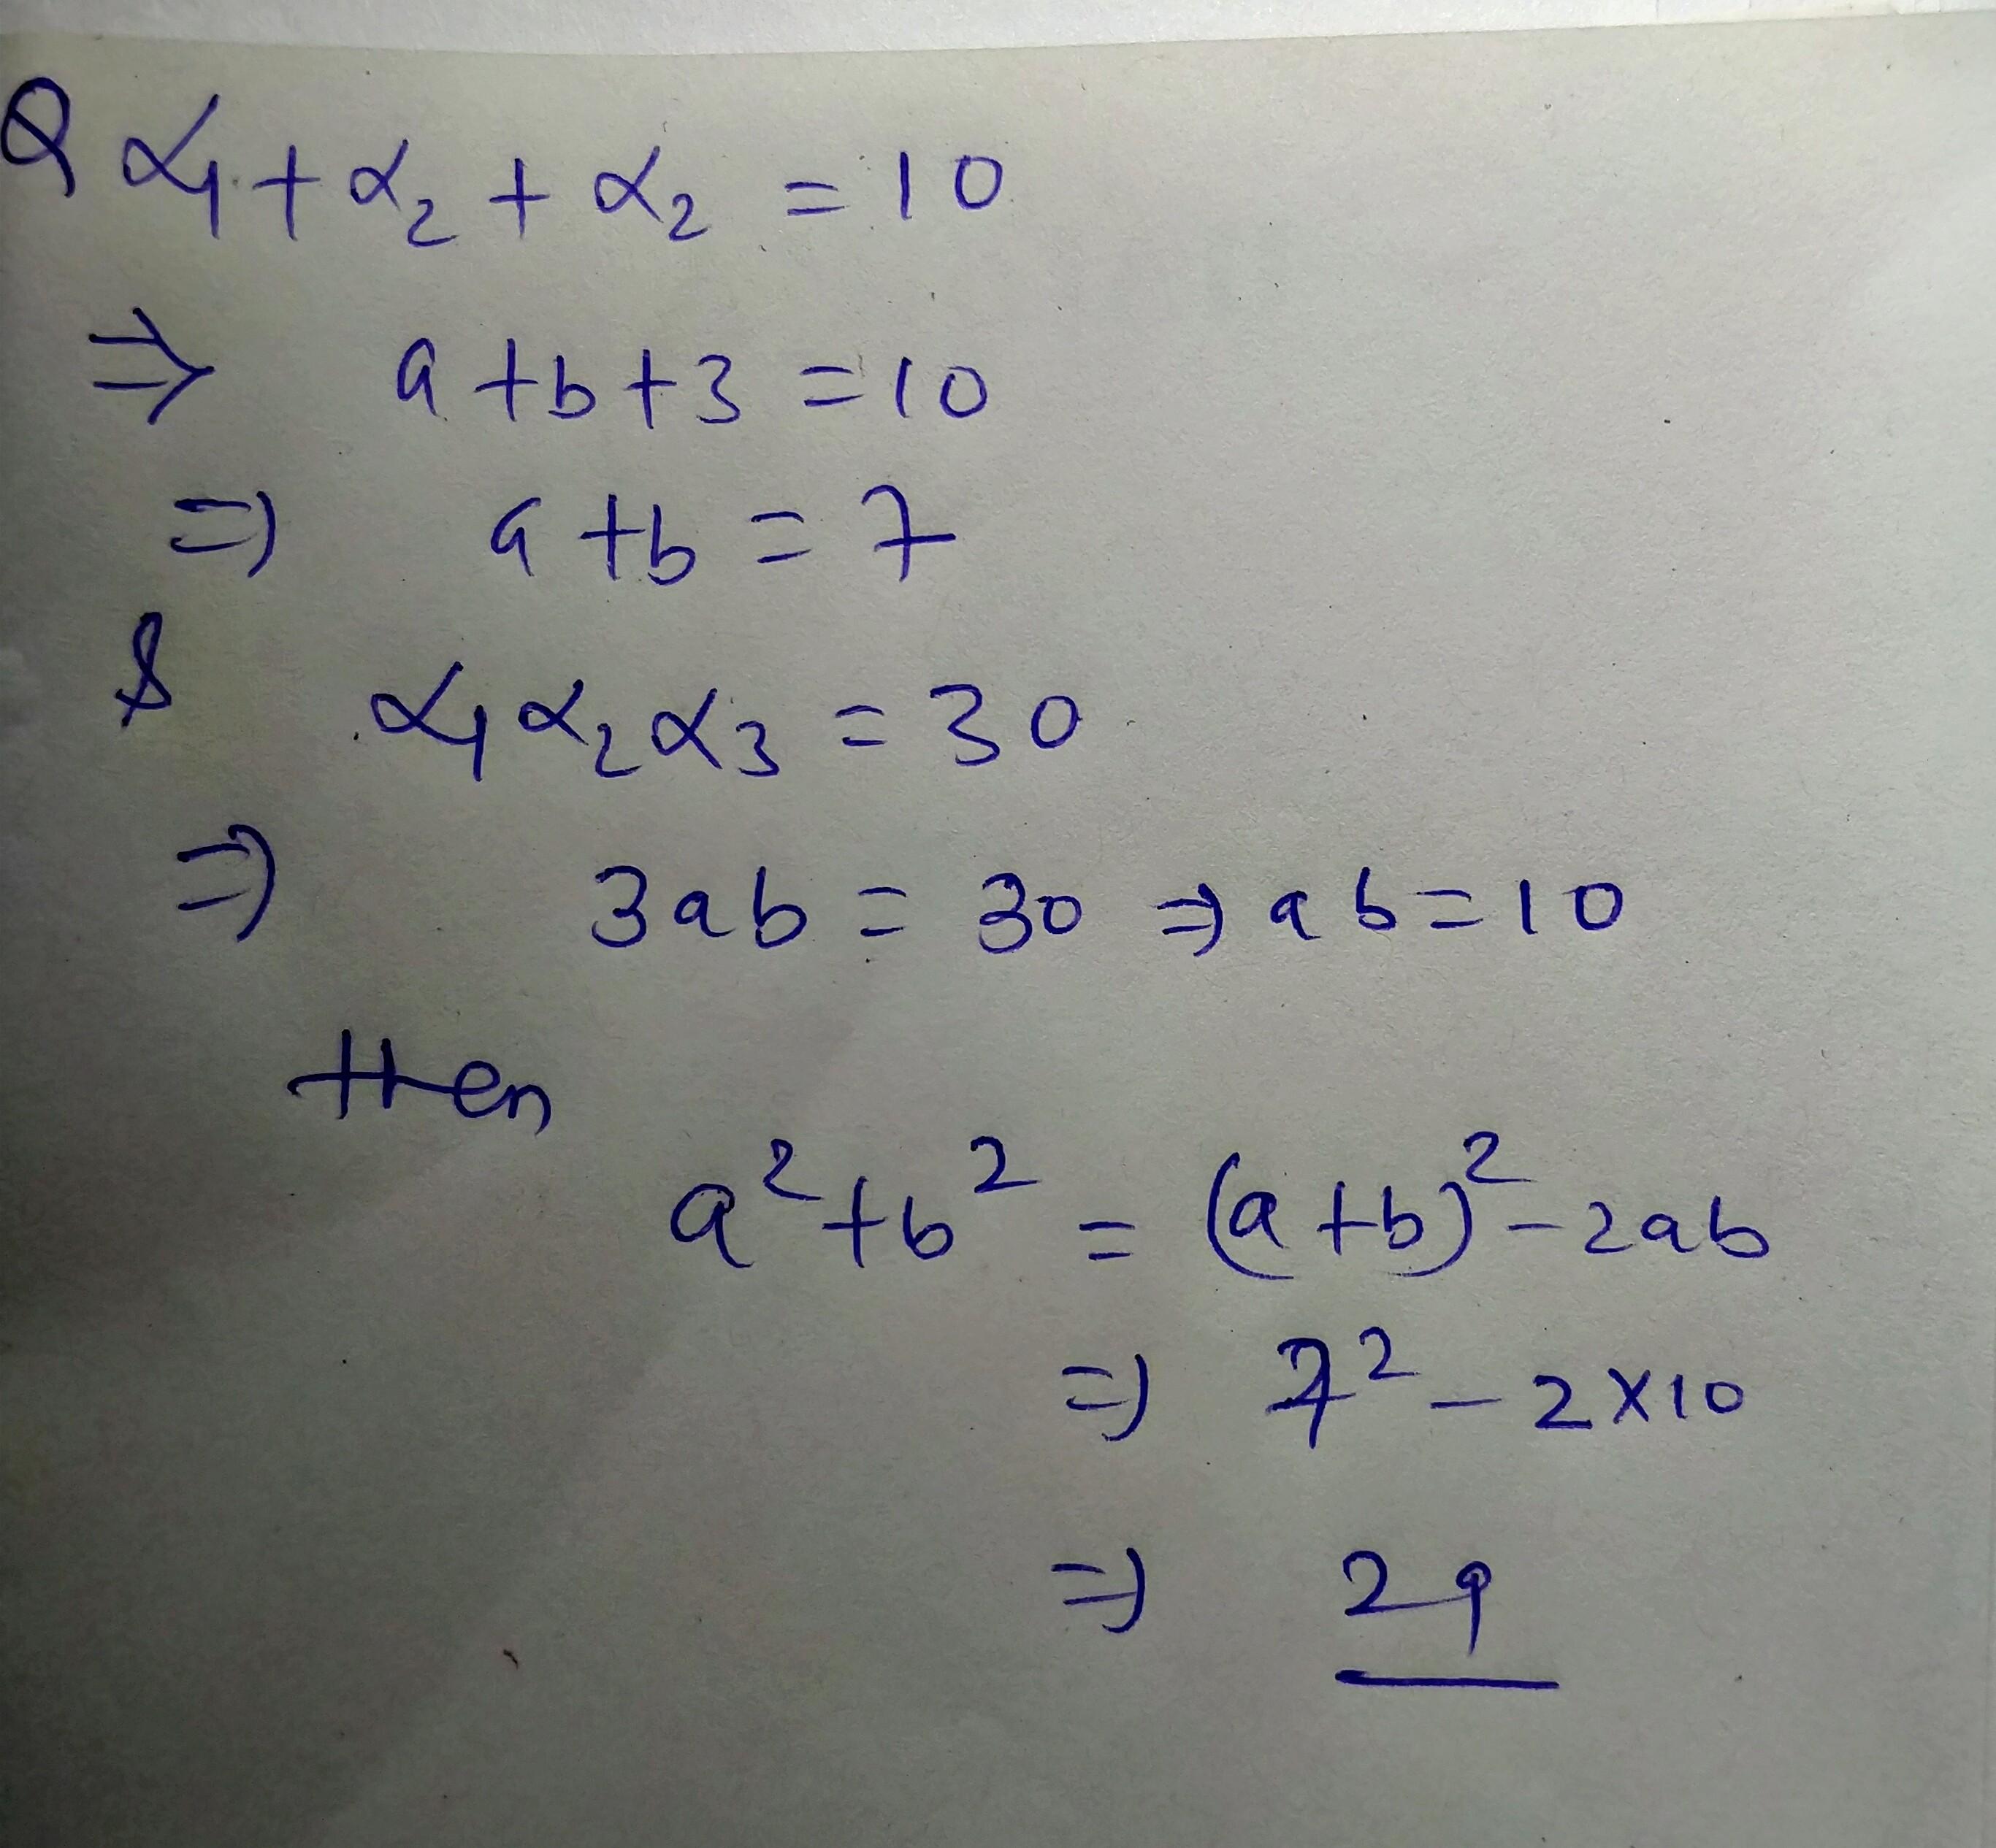 Q α₁ + α₂ + α₂ = 10
⇒ a + b + 3 = 10
⇒ a + b = 7
& α₁ α₂ α₃ = 30
⇒ 3ab = 30 ⇒ ab = 10
then
a² + b² = (a + b)² - 2ab
⇒ 7² - 2 × 10
⇒ 29